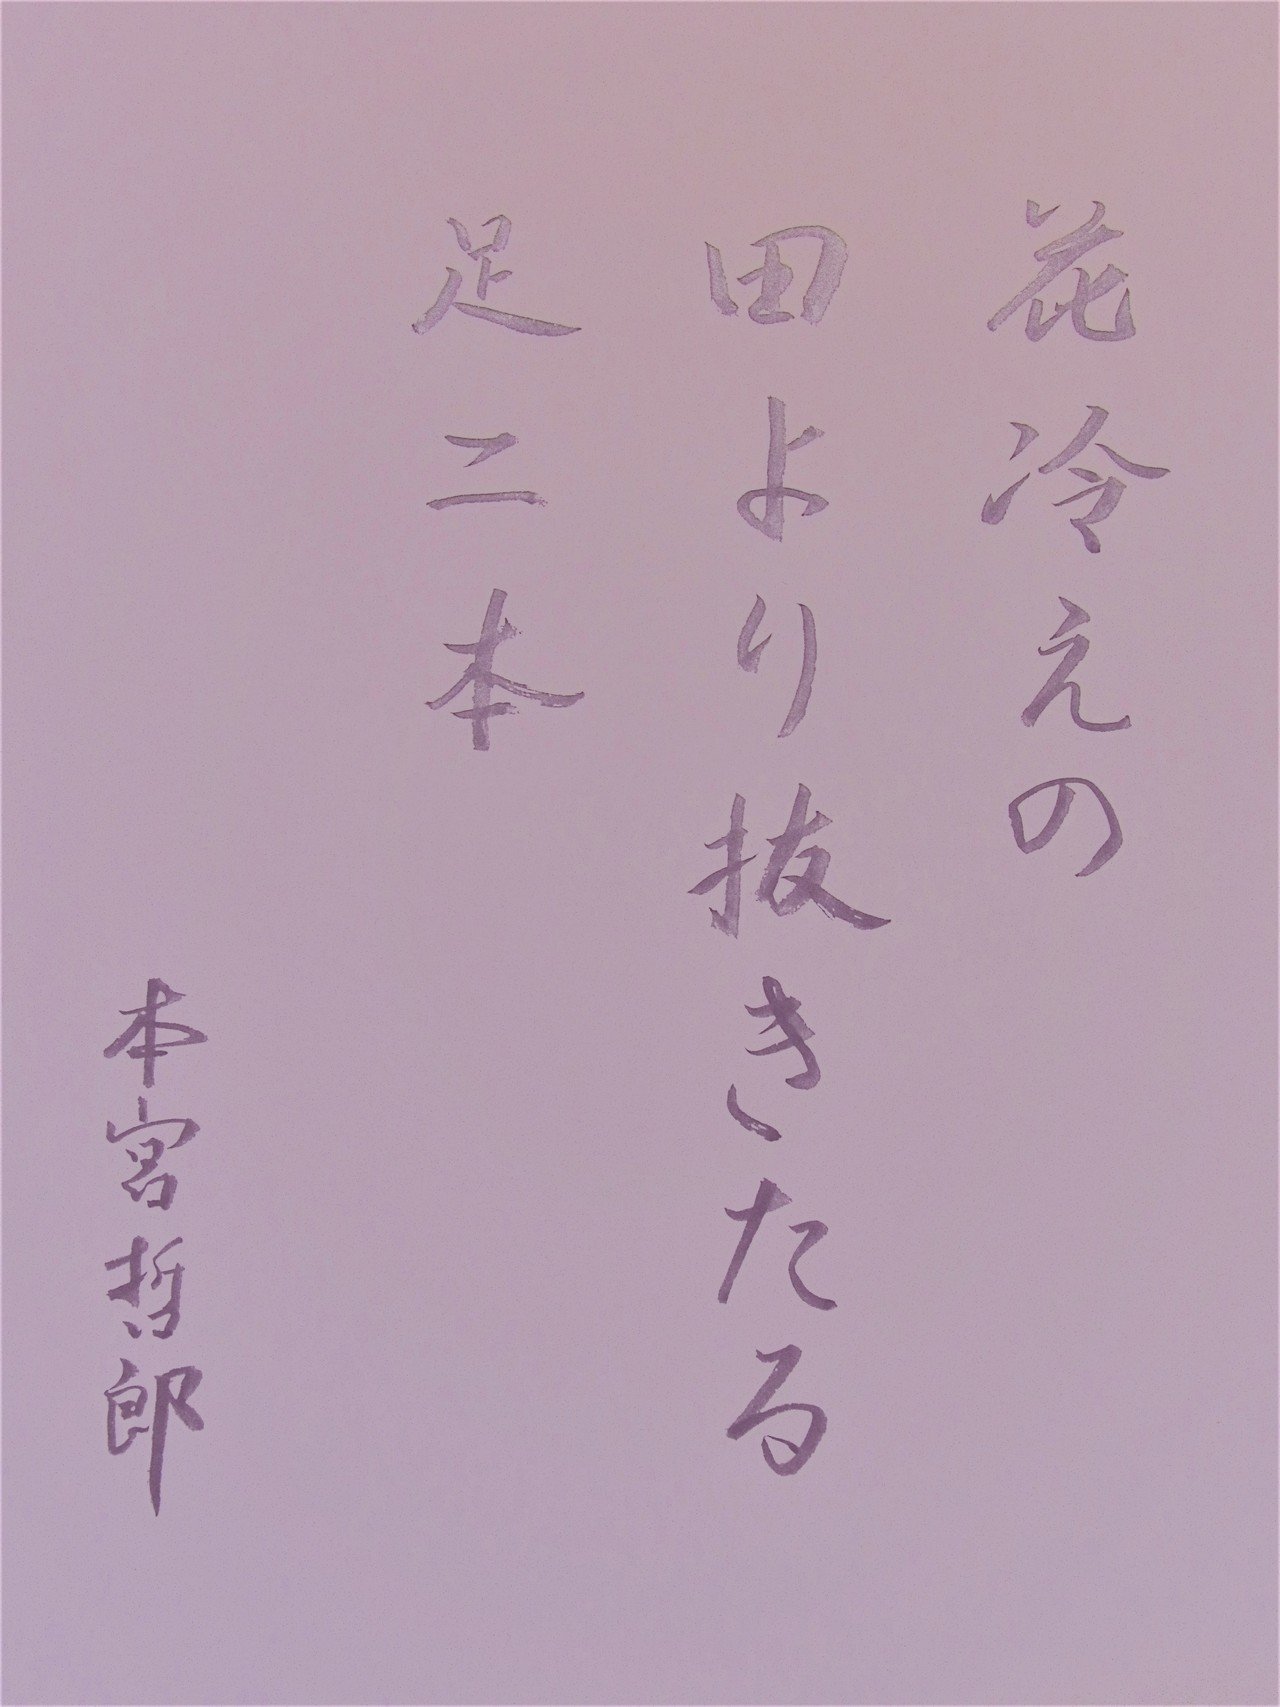 花冷えの
田より抜きたる
足二本
本宮哲郎